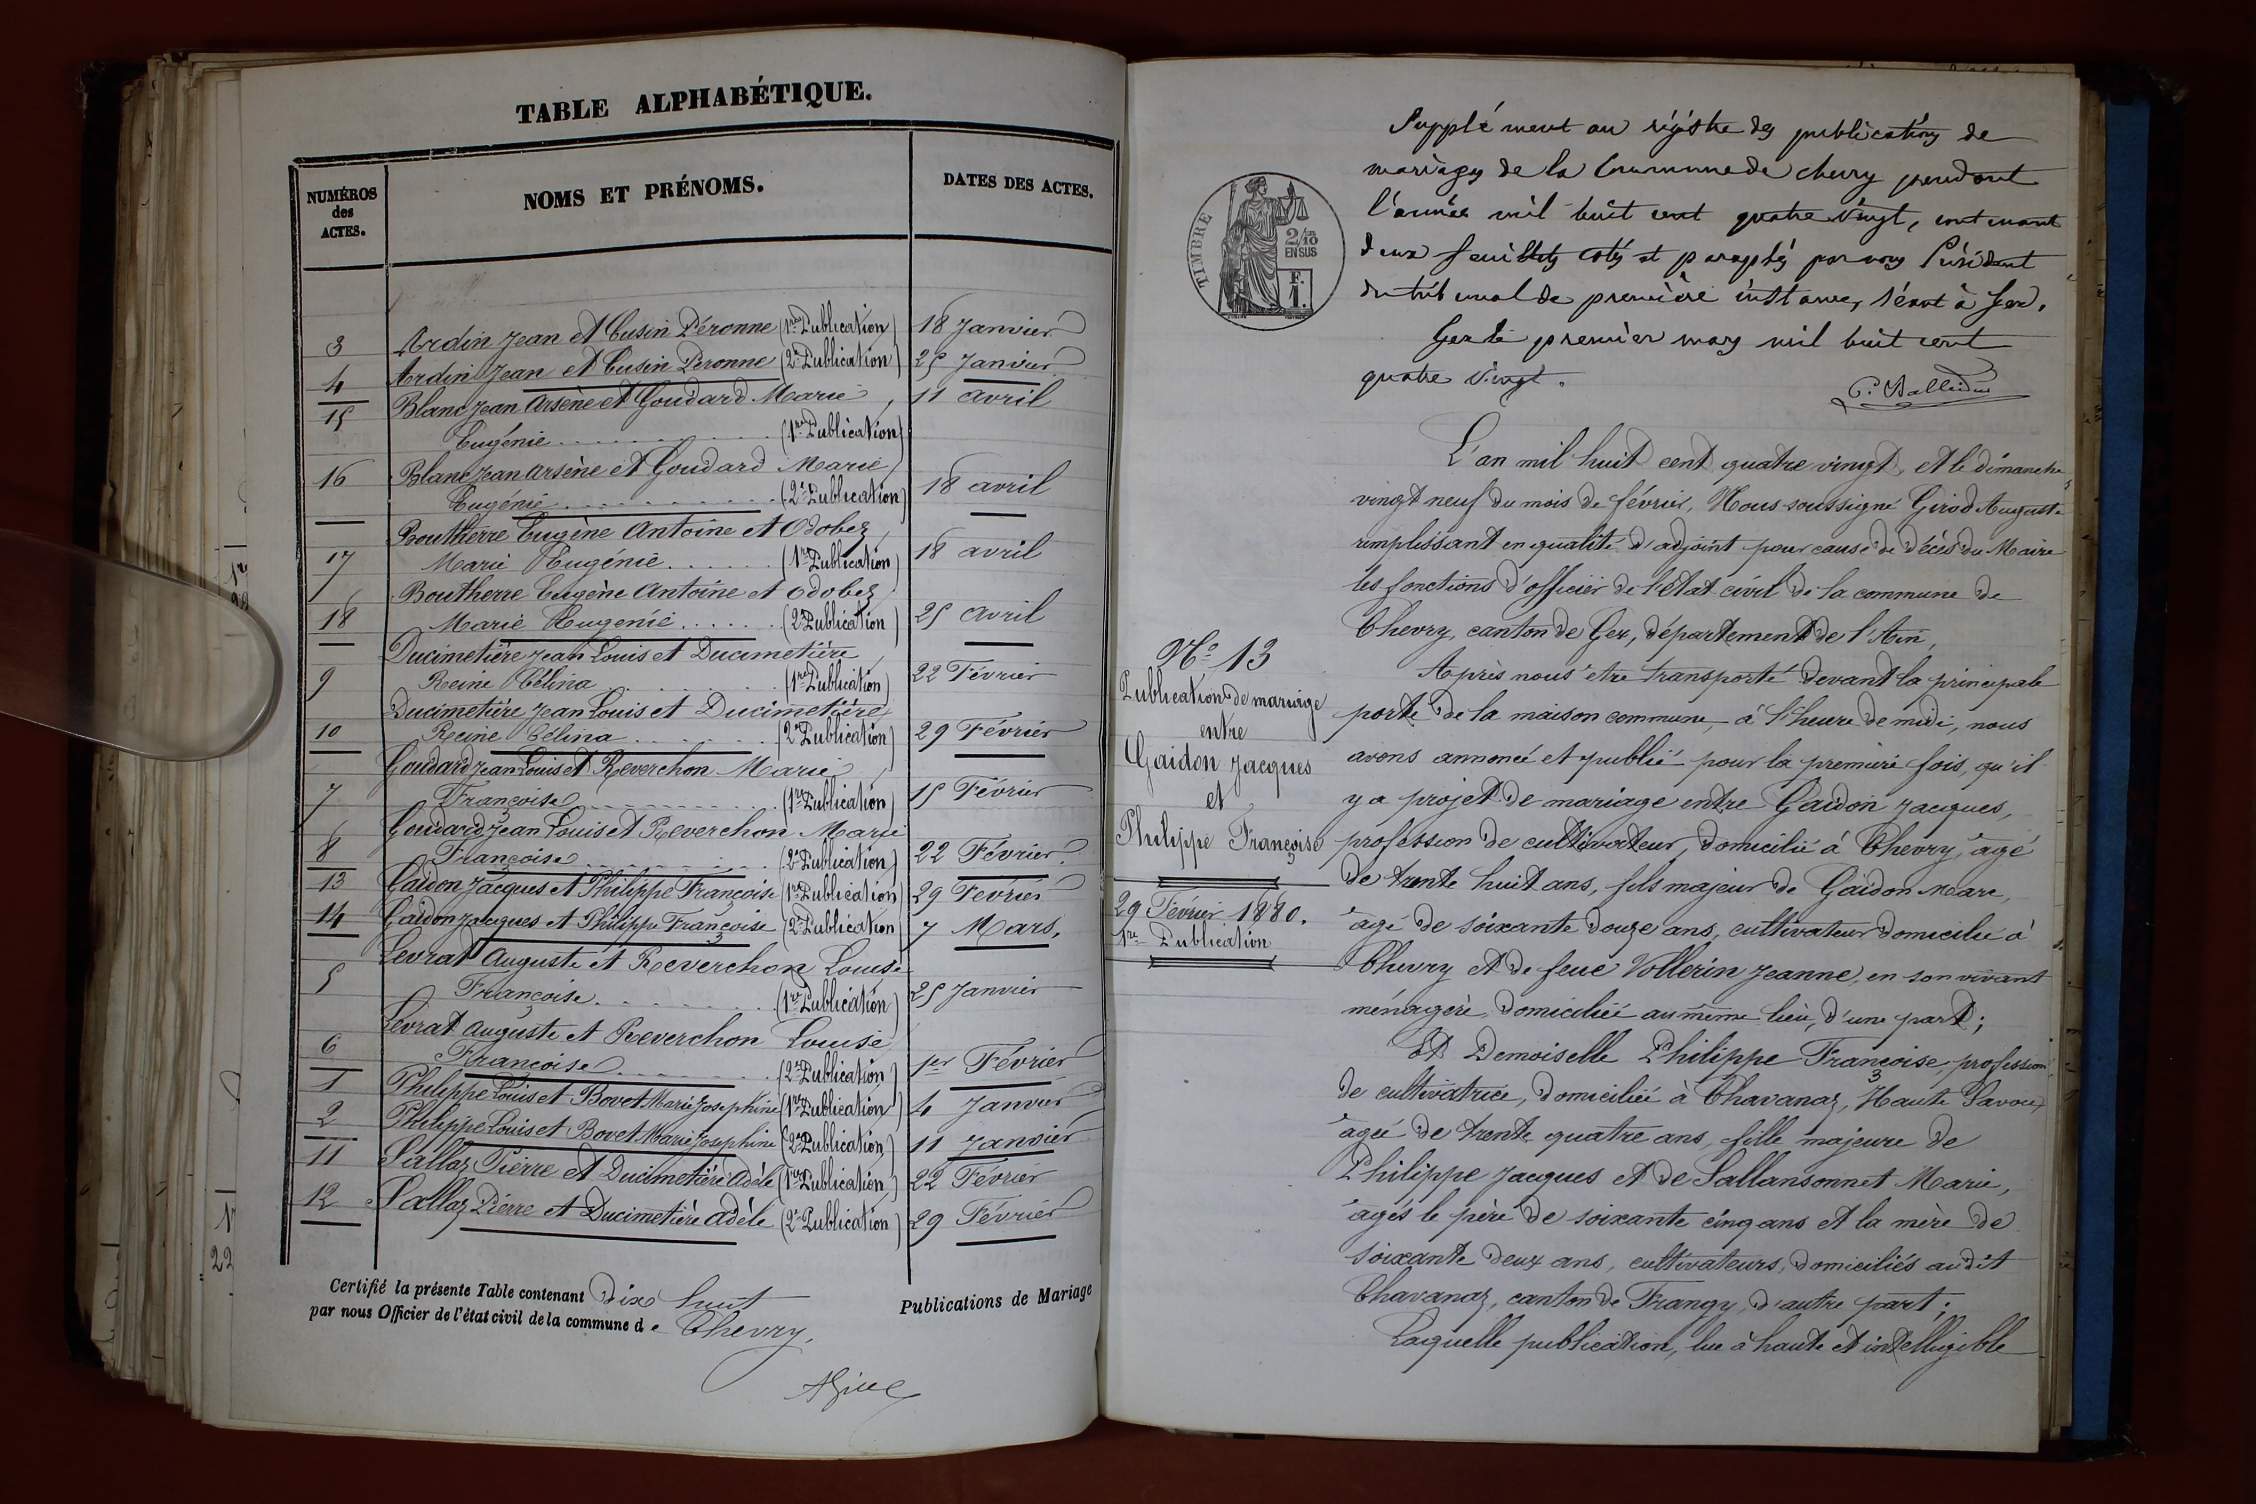 TABLE ALPHABÉTIQUE.
NUMÉROS
des
ACTES.
NOMS ET PRÉNOMS.
DATES DES ACTES.
3 Ardin Jean et Cusin Péronne (1re Publication) 18 Janvier
4 Ardin Jean et Cusin Péronne (2e Publication) 25 Janvier
15 Blanc Jean Arsène et Goudard Marie, 11 avril
Eugénie (1re Publication)
16 Blanc Jean Arsène et Goudard Marie
Eugénie (2e Publication) 18 avril
Boutherre Eugène Antoine et Odobez,
17 Marie Eugénie (1re Publication) 18 avril
Boutherre Eugène Antoine et Odobez
18 Marie Eugénie (2e Publication) 25 avril
Ducimetière Jean Louis et Ducimetière
9 Reine Célina (1re Publication) 22 Février
Ducimetière Jean Louis et Ducimetière
10 Reine Célina (2e Publication) 29 Février
Goudard Jean Louis et Reverchon Marie
7 Françoise (1re Publication) 15 Février
Goudard Jean Louis et Reverchon Marie
8 Françoise (2e Publication) 22 Février
13 Gaidon Jacques et Philippe Françoise (1re Publication) 29 Février
14 Gaidon Jacques et Philippe Françoise (2e Publication) 7 Mars.
Levrat Auguste et Reverchon Louise
5 Françoise (1re Publication) 25 Janvier
Levrat Auguste et Reverchon Louise
6 Françoise (2e Publication) 1er Février
1 Philippe Louis et Bovet Marie Josephine (1re Publication) 4 Janvier
2 Philippe Louis et Bovet Marie Josephine (2e Publication) 11 Janvier
11 Sallaz Pierre et Ducimetière Adèle (1re Publication) 22 Février
12 Sallaz Pierre et Ducimetière Adèle (2e Publication) 29 Février
Certifié la présente Table contenant dix huit Publications de Mariage
par nous Officier de l'état civil de la commune de Chevry.
TIMBRE
2/10
EN SUS
F.
1.
Supplément au régistre des publications de
mariages de la Commune de Chevry pendant
l'année mil huit cent quatre vingt, contenant
deux feuillets cotés et paraphés par nous Président
du tribunal de première instance, séant à Gex.
Gex le premier mars mil huit cent
quatre vingt.
L'an mil huit cent quatre vingt, et le dimanche
vingt neuf du mois de février, Nous soussigné Girod Auguste
remplissant en qualité d'adjoint pour cause de décès du Maire
les fonctions d'officier de l'Etat civil de la commune de
Chevry, canton de Gex, département de l'Ain,
Après nous être transporté devant la principale
porte de la maison commune, à l'heure de midi, nous
avons annoncé et publié pour la première fois, qu'il
y a projet de mariage entre Gaidon Jacques,
profession de cultivateur, domicilié à Chevry, âgé
de trente huit ans, fils majeur de Gaidon Marc,
âgé de soixante douze ans, cultivateur domicilié à
Chevry et de feue Vollerin Jeanne, en son vivant
ménagère, domiciliée au même lieu, d'une part;
Et Demoiselle Philippe Françoise, profession
de cultivatrice, domiciliée à Chavanaz, Haute Savoie,
âgée de trente quatre ans, fille majeure de
Philippe Jacques et de Sallansonnet Marie,
âgés le père de soixante cinq ans et la mère de
soixante deux ans, cultivateurs, domiciliés audit
Chavanaz, canton de Frangy, d'autre part;
Laquelle publication, lue à haute et intelligible
No 13
Publication de mariage
entre
Gaidon Jacques
et
Philippe Françoise
29 Février 1880.
1re Publication